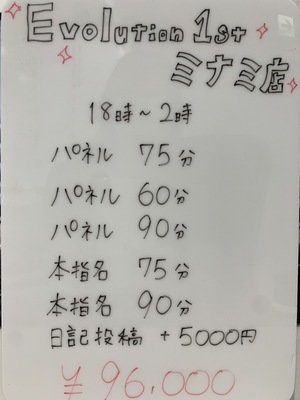 Evolution 1st
ミナミ店
18時～2時
パネル 75分
パネル 60分
パネル 90分
本指名 75分
本指名 90分
日記投稿 +5000円
¥96,000